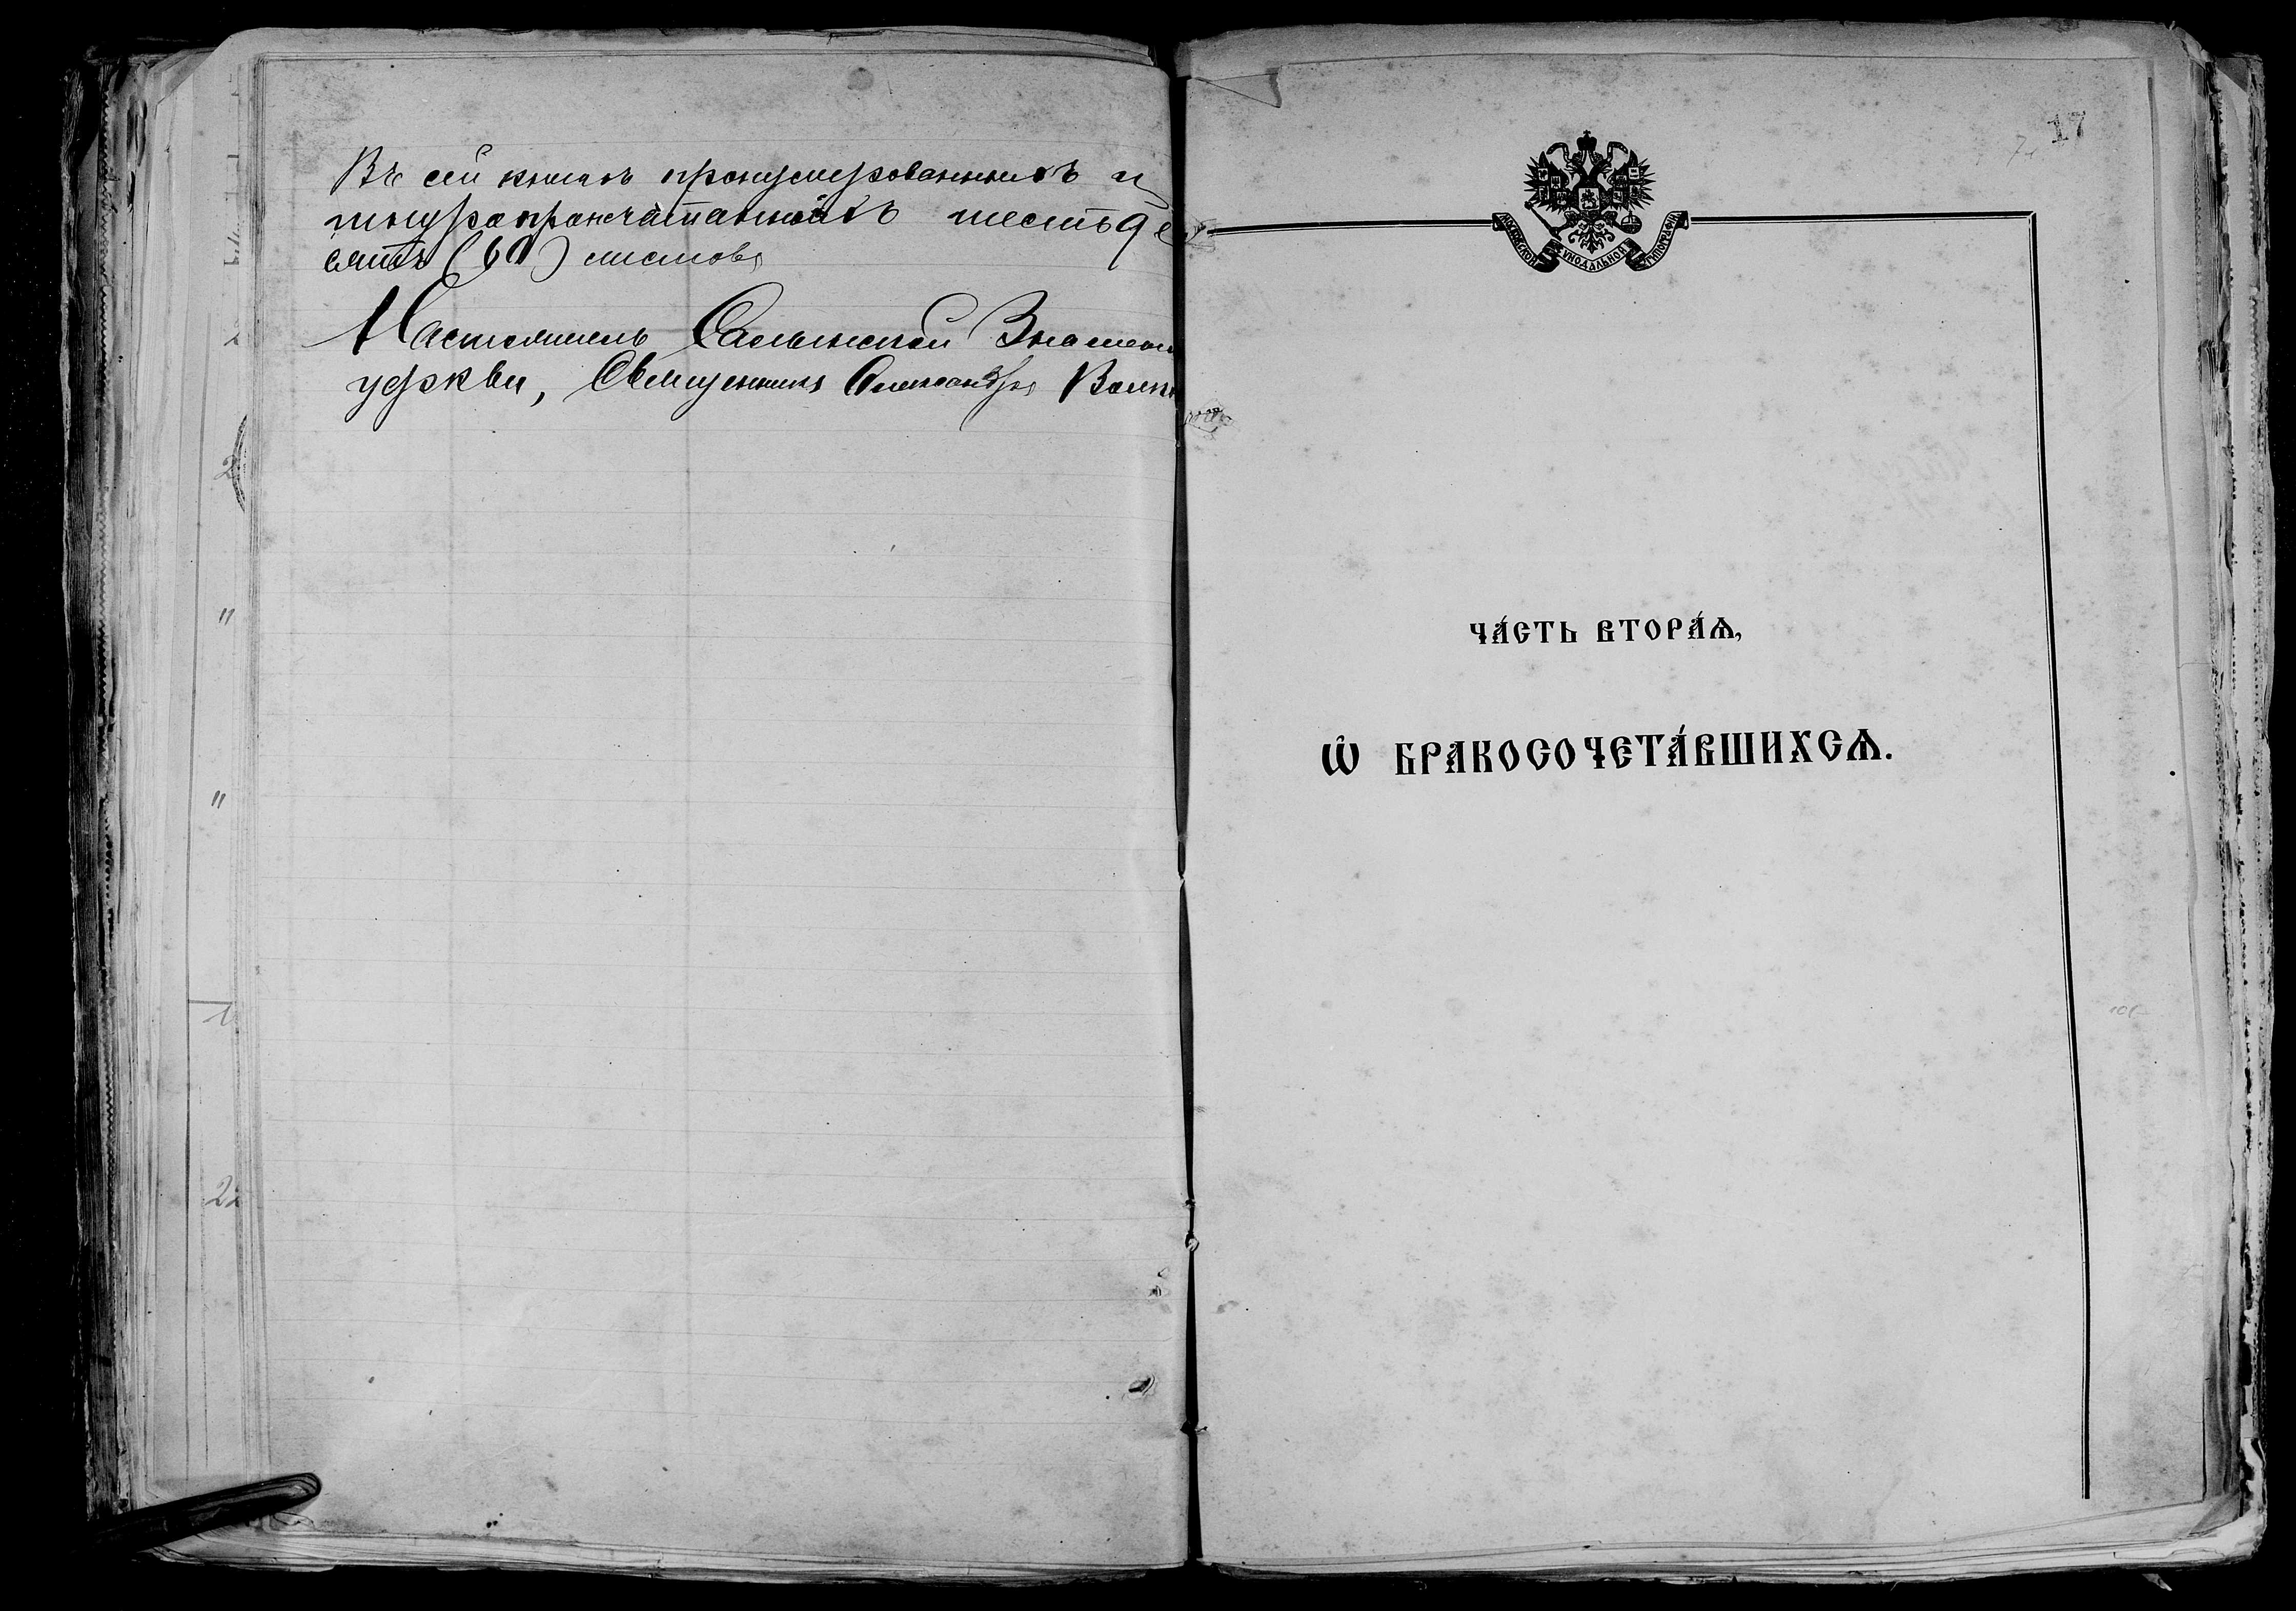 Въ сей книгѣ пронумерованныхъ и
шнуропропечатанныхъ шестьде
сятъ (60) листовъ
Настоятель Сальнской Знамен
церкви, Священникъ Александръ Волк
17
МОСКОВСКОЙ СѴНОДАЛЬНОЙ ТИПОГРАФІИ
ЧА́СТЬ ВТОРА́Ѧ,
Ѡ҆ БРАКОСОЧЕТА́ВШИХСѦ.